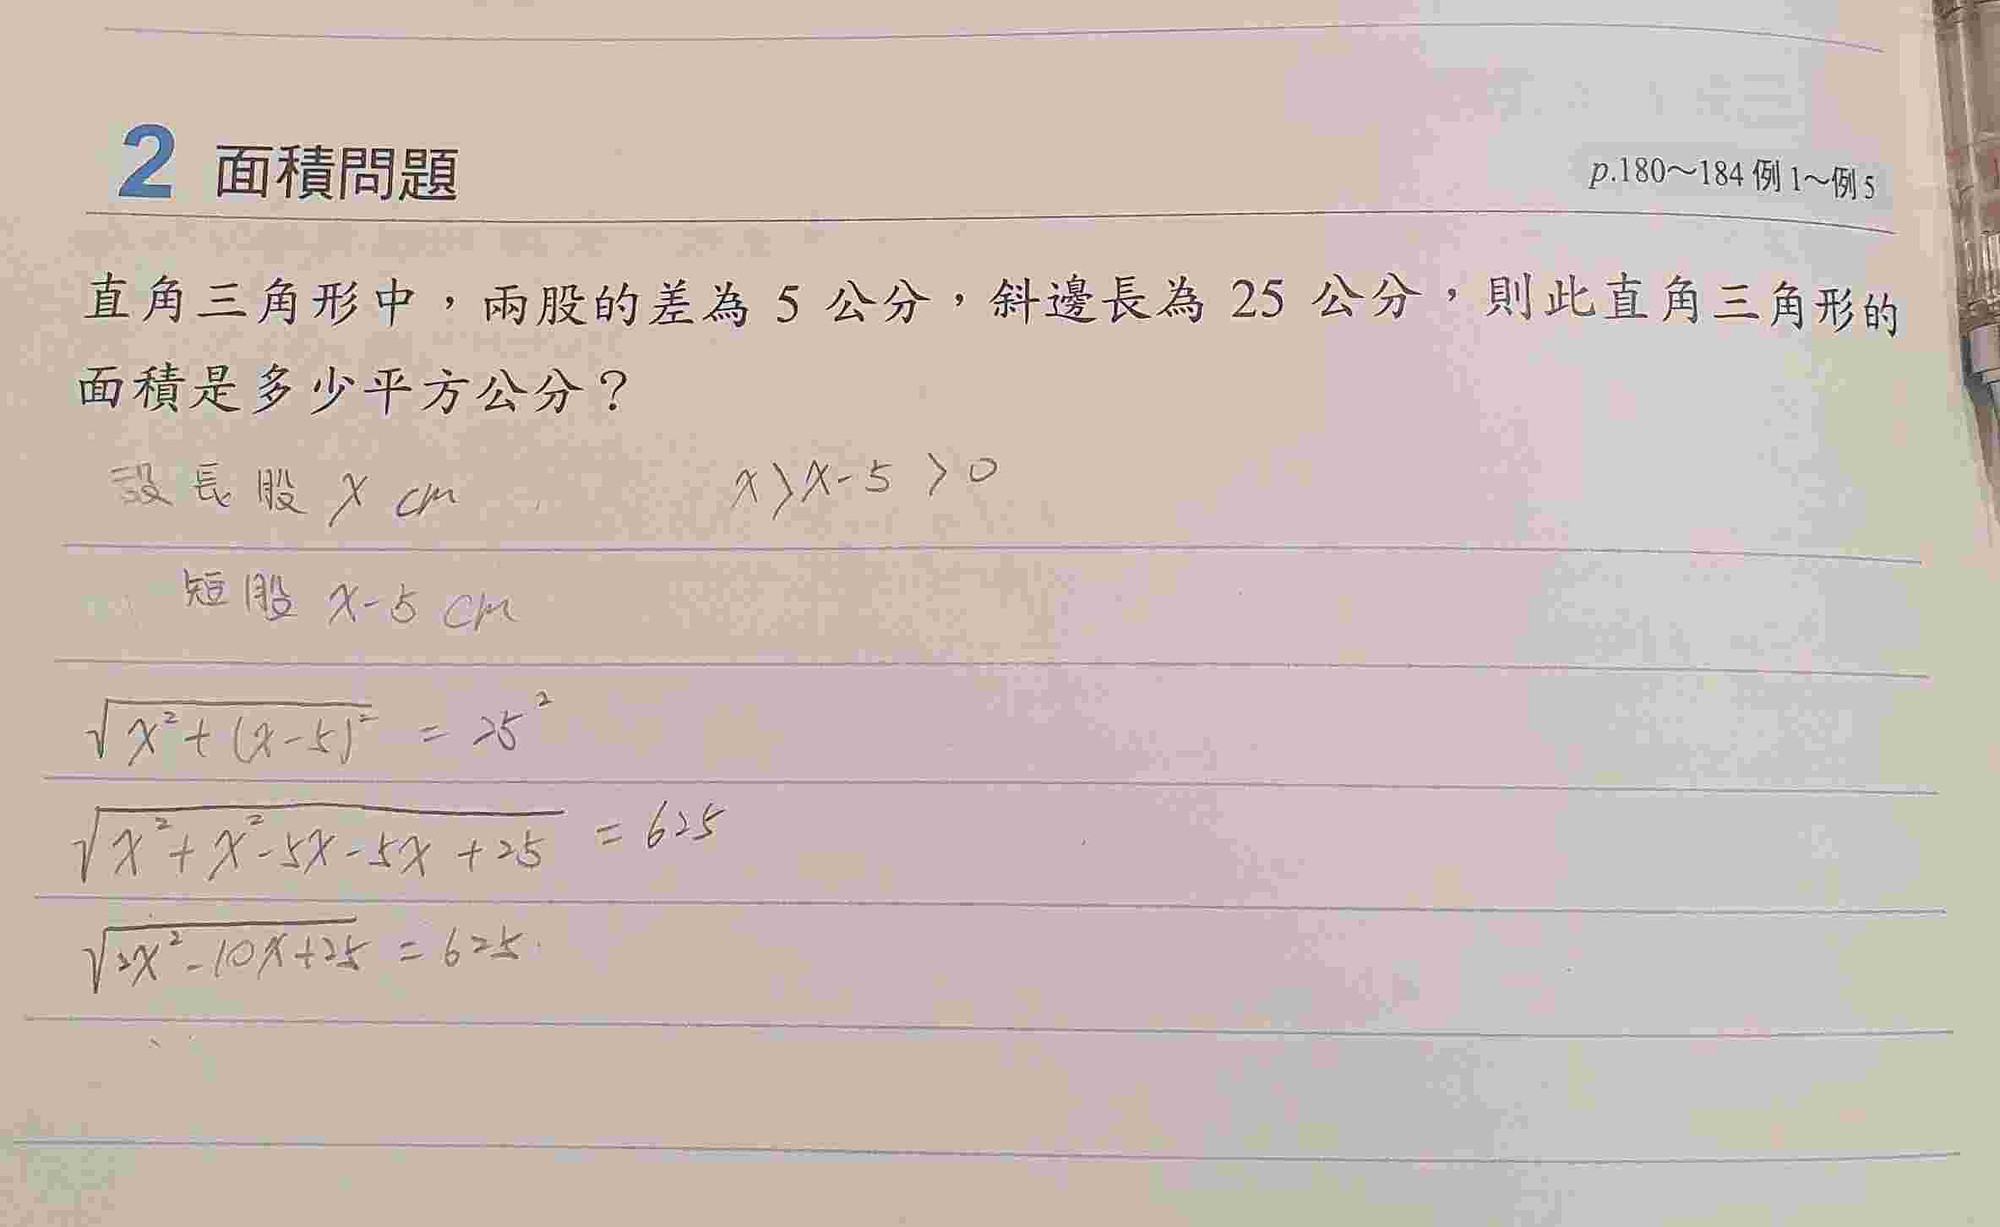 2 面積問題
p.180～184 例 1～例 5
直角三角形中，兩股的差為 5 公分，斜邊長為 25 公分，則此直角三角形的
面積是多少平方公分？
設長股 x cm x>x-5>0
短股 x-5 cm
√(x²+(x-5)²) = 25²
√(x²+x²-5x-5x+25) = 625
√(2x²-10x+25) = 625